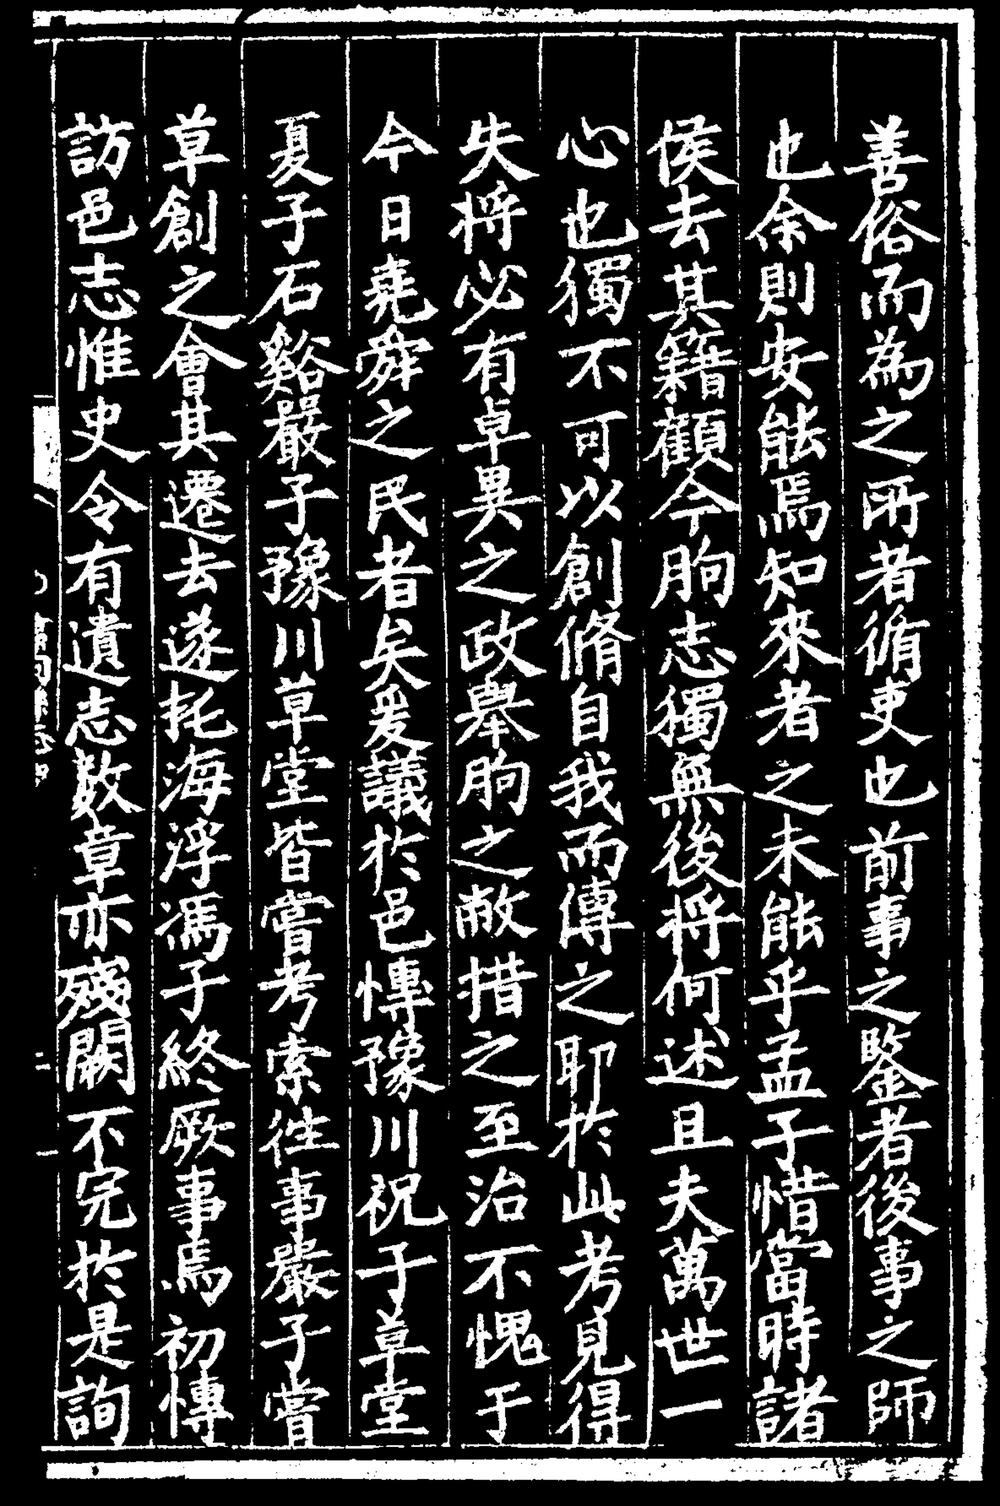 善俗而為之所者循吏也前事之鑒者後事之師
也余則安能焉知來者之未能乎孟子惜當時諸
侯去其籍顧今朐志獨無後將何述且夫萬世一
心也獨不可以創脩自我而傳之耶於此考見得
失将必有卓異之政舉朐之敝措之至治不愧于
今日堯舜之民者矣爰議於邑慱豫川祝子草堂
夏子石谿嚴子豫川草堂皆嘗考索徃事嚴子嘗
草創之會其遷去遂托海浮馮子終厥事焉初慱
訪邑志惟史令有遺志数章亦殘闕不完於是詢